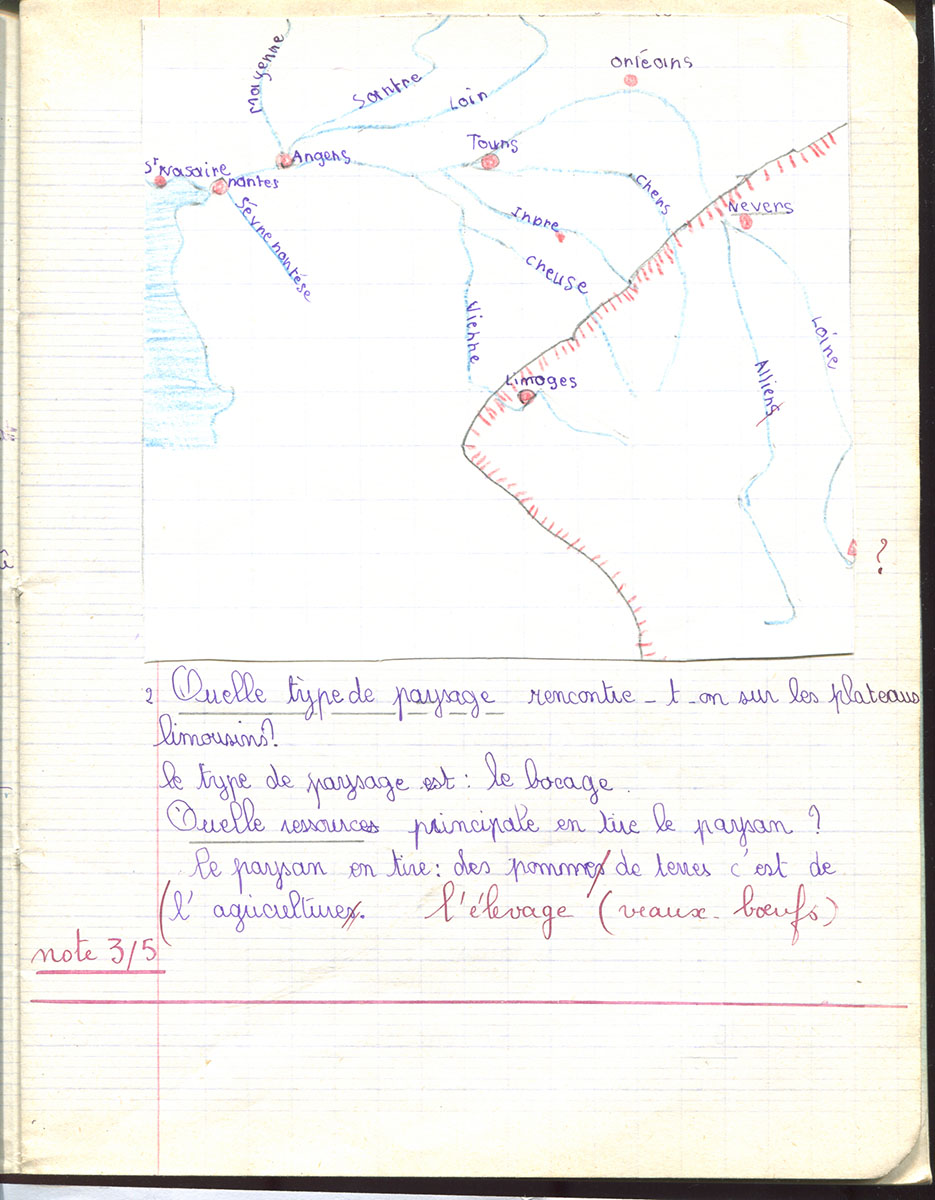 Mayenne
Santre
Loin
Orléans
Angens
Tours
St Nasaire
nantes
Sèvre nantése
Chens
Nevers
Inbre
cheuse
Vienne
Limoges
Loine
Alliens
?
2 Quelle type de paysage rencontre-t-on sur les plateaus
limousins?
le type de paysage est : le bocage.
Quelle ressources principale en tire le paysan ?
Le paysan en tire : des pommes de terres c'est de
l'agricultures. l'élevage (veaux-bœufs)
note 3/5